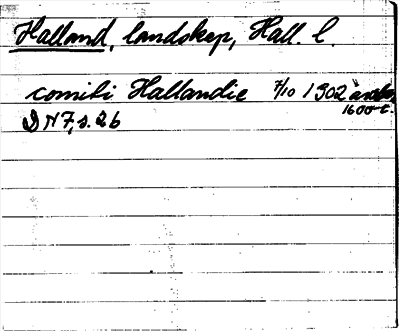 Halland, landskap, Hall. l.
comiti Hallandie 7/10 1302 avskr.
1600-t.
DN 7, s. 26